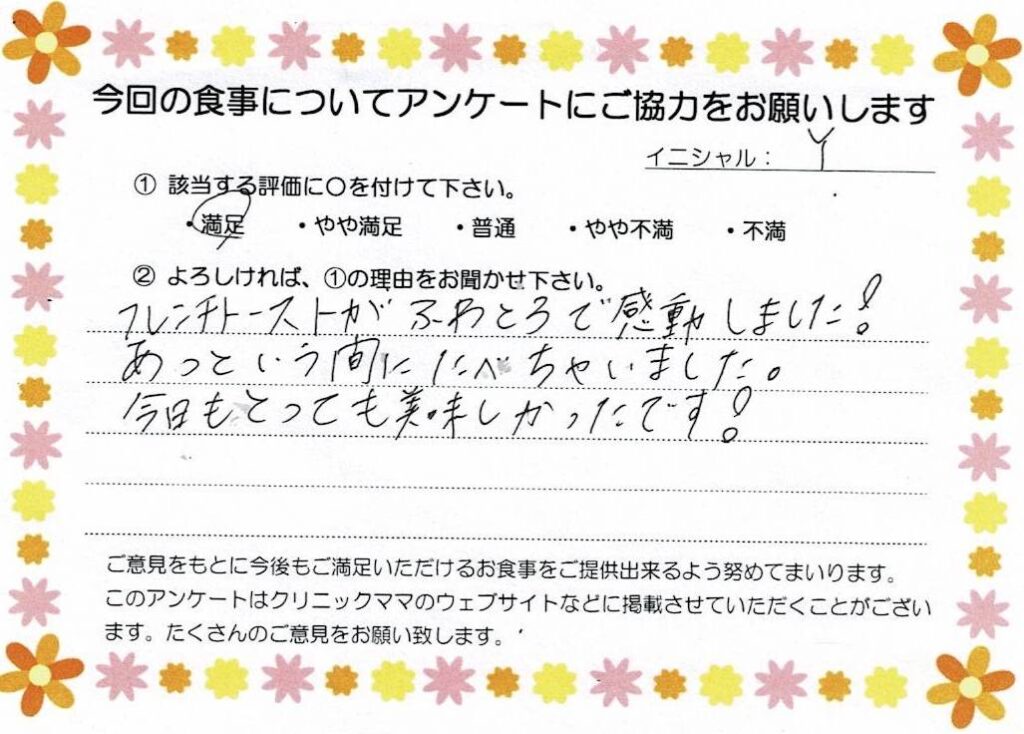 今回の食事についてアンケートにご協力をお願いします
イニシャル： Y
① 該当する評価に〇を付けて下さい。
・満足 ・やや満足 ・普通 ・やや不満 ・不満
② よろしければ、①の理由をお聞かせ下さい。
フレンチトーストがふわとろで感動しました！
あっという間にたべちゃいました。
今日もとっても美味しかったです！
ご意見をもとに今後もご満足いただけるお食事をご提供出来るよう努めてまいります。
このアンケートはクリニックママのウェブサイトなどに掲載させていただくことがござい
ます。たくさんのご意見をお願い致します。